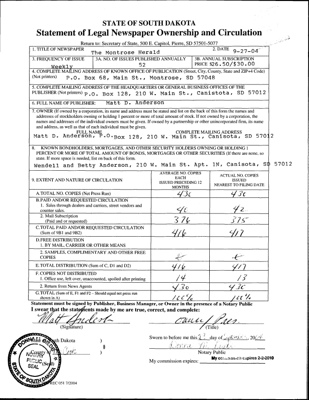 STATE OF SOUTH DAKOTA
Statement of Legal Newspaper Ownership and Circulation
Return to: Secretary of State, 500 E. Capitol, Pierre, SD 57501-5077
1. TITLE OF NEWSPAPER
The Montrose Herald
2. DATE 9-27-04
3. FREQUENCY OF ISSUE
Weekly
3A. NO. OF ISSUES PUBLISHED ANNUALLY
52
3B. ANNUAL SUBSCRIPTION
PRICE $26.50/$30.00
4. COMPLETE MAILING ADDRESS OF KNOWN OFFICE OF PUBLICATION (Street, City, County, State and ZIP+4 Code)
(Not printers) P.O. Box 68, Main St. Montrose, SD 57048
5. COMPLETE MAILING ADDRESS OF THE HEADQUARTERS OR GENERAL BUSINESS OFFICES OF THE
PUBLISHER (Not printers) P.O. Box 128, 210 W. Main St., Canistota, SD 57012
6. FULL NAME OF PUBLISHER: Matt D. Anderson
7. OWNER (If owned by a corporation, its name and address must be stated and list on the back of this form the names and
addresses of stockholders owning or holding 1 percent or more of total amount of stock. If not owned by a corporation, the
names and addresses of the individual owners must be given. If owned by a partnership or other unincorporated firm, its name
and address, as well as that of each individual must be given.
FULL NAME
COMPLETE MAILING ADDRESS
Matt D. Anderson, P.O. Box 128, 210 W. Main St., Canistota, SD 57012
8. KNOWN BONDHOLDERS, MORTGAGES, AND OTHER SECURITY HOLDERS OWNING OR HOLDING 1
PERCENT OR MORE OF TOTAL AMOUNT OF BONDS, MORTGAGES OR OTHER SECURITIES (If there are none, so
state. If more space is needed, list on back of this form.
Wendell and Betty Anderson, 210 W. Main St. Apt. 1N, Canistota, SD 57012
9. EXTENT AND NATURE OF CIRCULATION
AVERAGE NO. COPIES
EACH
ISSUED PRECEDING 12
MONTHS
ACTUAL NO. COPIES
ISSUED
NEAREST TO FILING DATE
A. TOTAL NO. COPIES (Net Press Run)
430
430
B. PAID AND/OR REQUESTED CIRCULATION
1. Sales through dealers and carriers, street vendors and
counter sales.
42
2. Mail Subscription
(Paid and or requested)
376
375
C. TOTAL PAID AND/OR REQUESTED CIRCULATION
(Sum of 9B1 and 9B2)
416
417
D. FREE DISTRIBUTION
1. BY MAIL, CARRIER OR OTHER MEANS
2. SAMPLES, COMPLIMENTARY AND OTHER FREE
COPIES
E. TOTAL DISTRIBUTION (Sum of C, D1 and D2)
416
417
F. COPIES NOT DISTRIBUTED
1. Office use, left over, unaccounted, spoiled after printing
14
13
2. Return from News Agents
430
430
G. TOTAL (Sum of E, F1 and F2 - Should equal net press run
shown in A)
100%
100%
Statement must be signed by Publisher, Business Manager, or Owner in the presence of a Notary Public
I swear that the statements made by me are true, correct, and complete:
Matt Anderson
(Signature)
(Title)
South Dakota
County
Sworn to before me this
day of
Notary Public
My commission expires:
NOTARY
PUBLIC
SEAL
SOUTH DAKOTA